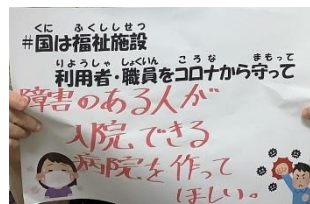 くに ふくししせつ
#国は福祉施設
りようしゃ しょくいん ころな まもって
利用者・職員をコロナから守って
障害のある人が
入院できる
病院を作って
ほしい。